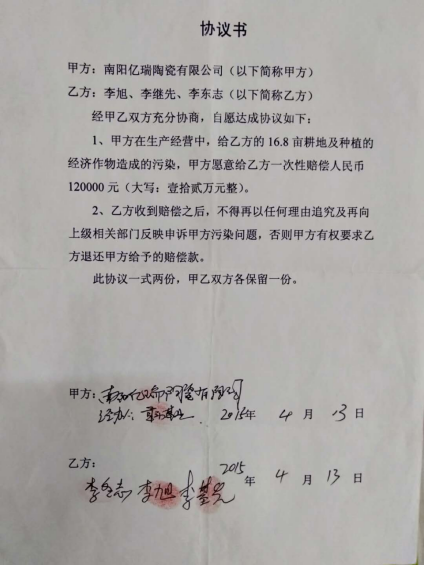 协议书
甲方：南阳亿瑞陶瓷有限公司（以下简称甲方）
乙方：李旭、李继先、李东志（以下简称乙方）
经甲乙双方充分协商，自愿达成协议如下：
1、甲方在生产经营中，给乙方的 16.8 亩耕地及种植的
经济作物造成的污染，甲方愿意给乙方一次性赔偿人民币
120000 元（大写：壹拾贰万元整）。
2、乙方收到赔偿之后，不得再以任何理由追究及再向
上级相关部门反映申诉甲方污染问题，否则甲方有权要求乙
方退还甲方给予的赔偿款。
此协议一式两份，甲乙双方各保留一份。
甲方：南阳亿瑞陶瓷有限公司
经办人： 2015年 4 月 13 日
乙方： 2015 年 4 月 13 日
李东志 李旭 李基先